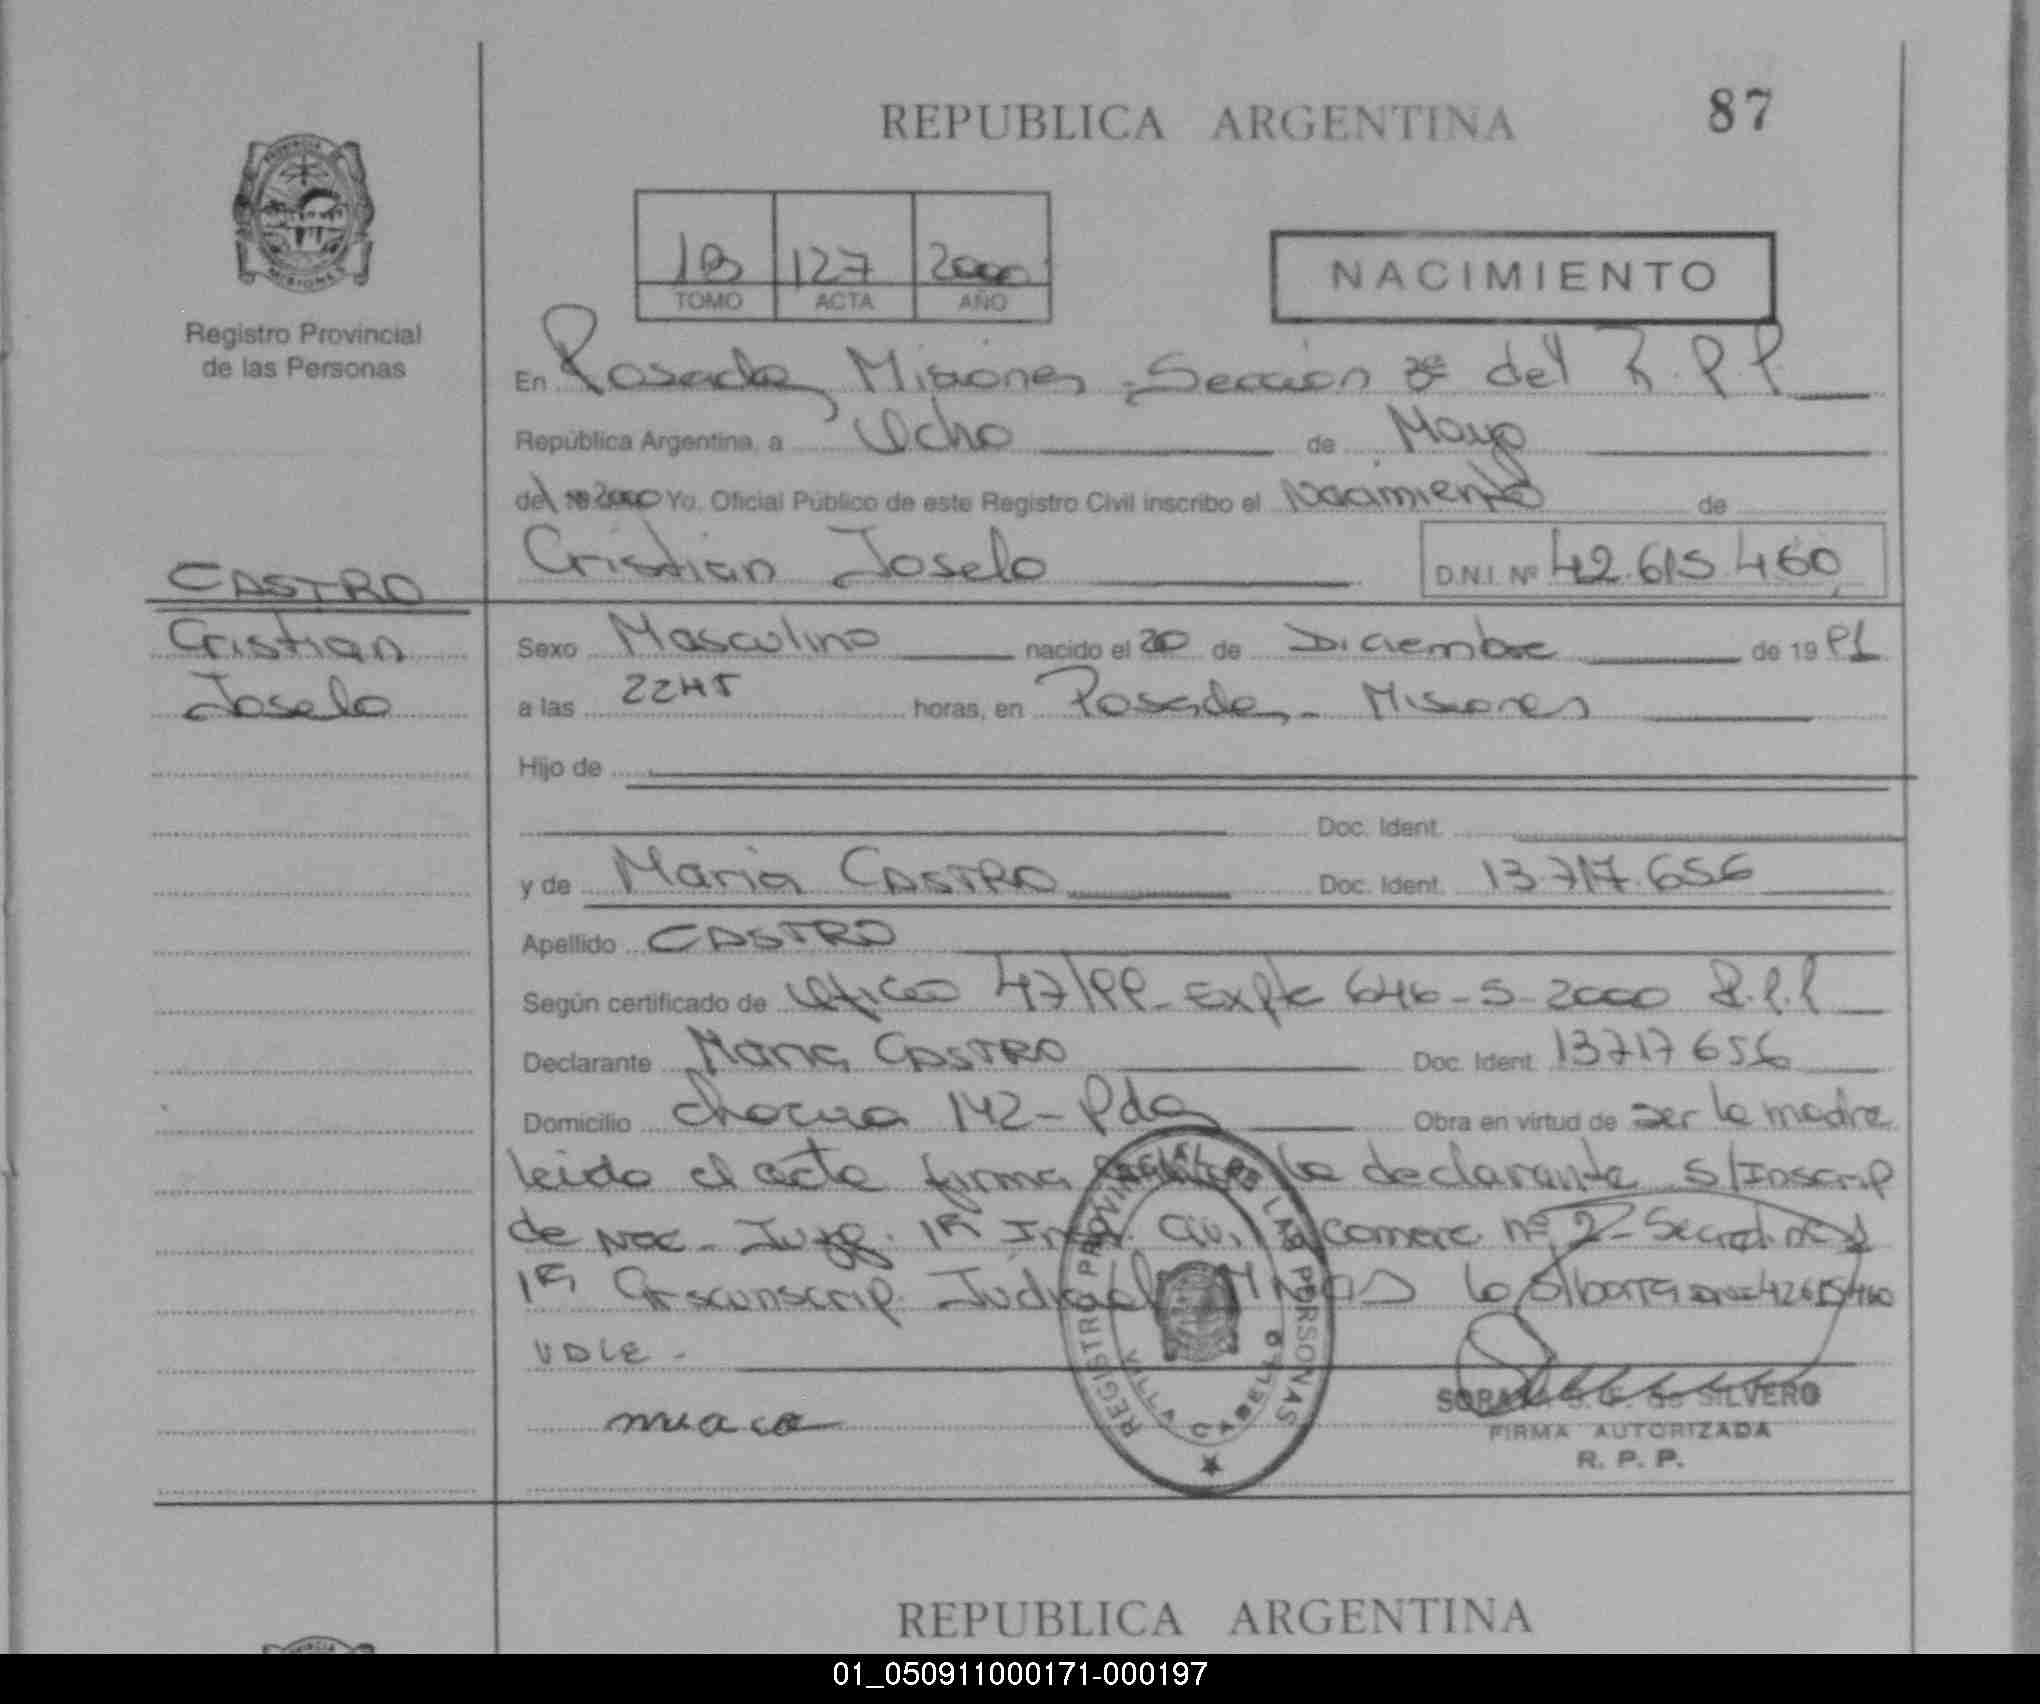 REPUBLICA ARGENTINA
87
PROVINCIA MISIONES
Registro Provincial
de las Personas
1B 127 2000
TOMO ACTA AÑO
NACIMIENTO
En Posadas, Misiones, Sección 3ª del R.P.P
República Argentina, a Ocho de Mayo
del 2000 Yo, Oficial Público de este Registro Civil inscribo el Nacimiento de
Cristian Joselo D.N.I. Nº 42.615.460
CASTRO
Cristian
Joselo
Sexo Masculino nacido el 20 de Diciembre de 19 91
a las 2245 horas, en Posadas - Misiones
Hijo de
Doc. Ident.
y de Maria CASTRO Doc. Ident. 13.717.656
Apellido CASTRO
Según certificado de Oficio 47/99 - Expte 646-S-2000 R.P.P
Declarante Maria CASTRO Doc. Ident. 13717656
Domicilio 142 - Pdas Obra en virtud de ser la madre
leido el acta firma la declarante S/Inscrip
de Nac - Juzg. 1ª Inst. Civil Comerc nº 2 - Secret. nº 1
1ª Circunscrip. Judicial MNES lo S/borra 42615460
VALE -
REGISTRO PROVINCIAL DE LAS PERSONAS
VILLA CABELLO
SILVERO
FIRMA AUTORIZADA
R. P. P.
REPUBLICA ARGENTINA
01_050911000171-000197